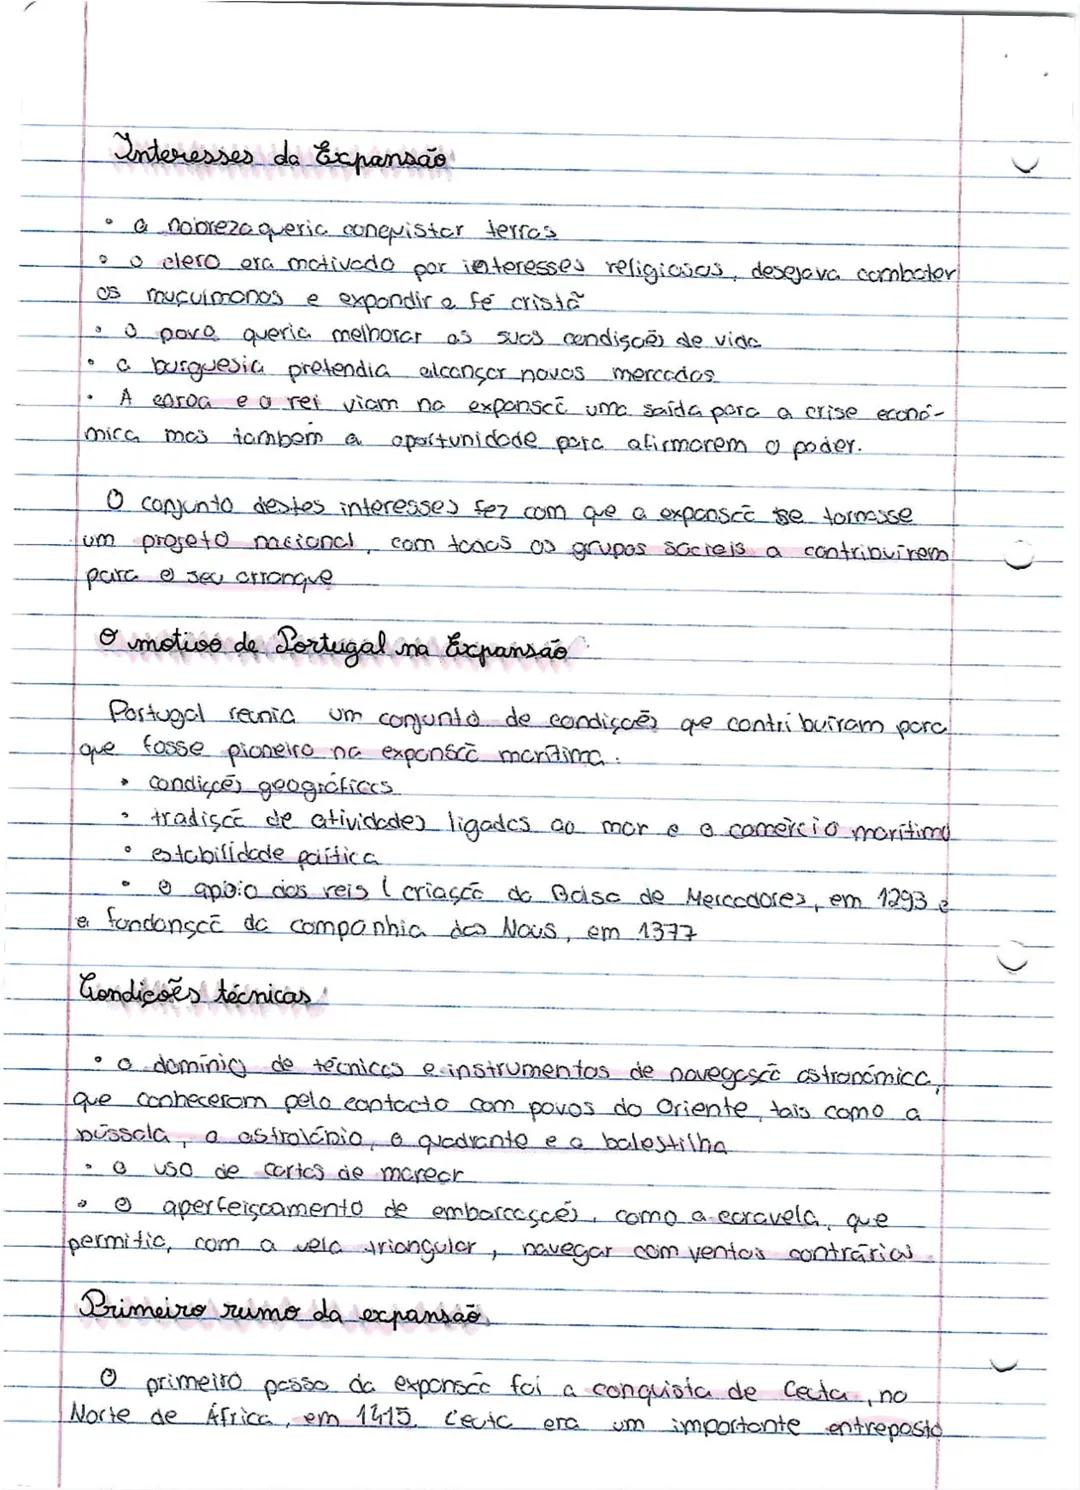 Interesses da Expansão
• a nobreza queria conquistar terras
• o clero era motivado por interesses religiosos, desejava combater
os muçulmanos e expandir a fé cristã
• o povo queria melhorar as suas condições de vida
• a burguesia pretendia alcançar novos mercados
• A coroa e o rei viam na expansão uma saída para a crise econó-
mica mas também a oportunidade para afirmarem o poder.
O conjunto destes interesses fez com que a expansão se tornasse
um projeto nacional, com todos os grupos sociais a contribuírem
para o seu arranque
O motivo de Portugal na Expansão
Portugal reunia um conjunto de condições que contribuíram para
que fosse pioneiro na expansão marítima:
• condições geográficas
• tradição de atividades ligadas ao mar e o comércio marítimo
• estabilidade política
• o apoio dos reis (criação da Bolsa de Mercadores, em 1293 e
a fundansção da companhia das Naus, em 1377
Condições técnicas
• o domínio de técnicas e instrumentos de navegação astronómica,
que conheceram pelo contacto com povos do Oriente, tais como a
bússola, o astrolábio, o quadrante e a balestilha
• o uso de cartas de marear
• o aperfeiçoamento de embarcações, como a caravela, que
permitia, com a vela triangular, navegar com ventos contrários
Primeiro rumo da expansão
O primeiro passo da expansão foi a conquista de Ceuta, no
Norte de África, em 1415. Ceuta era um importante entreposto